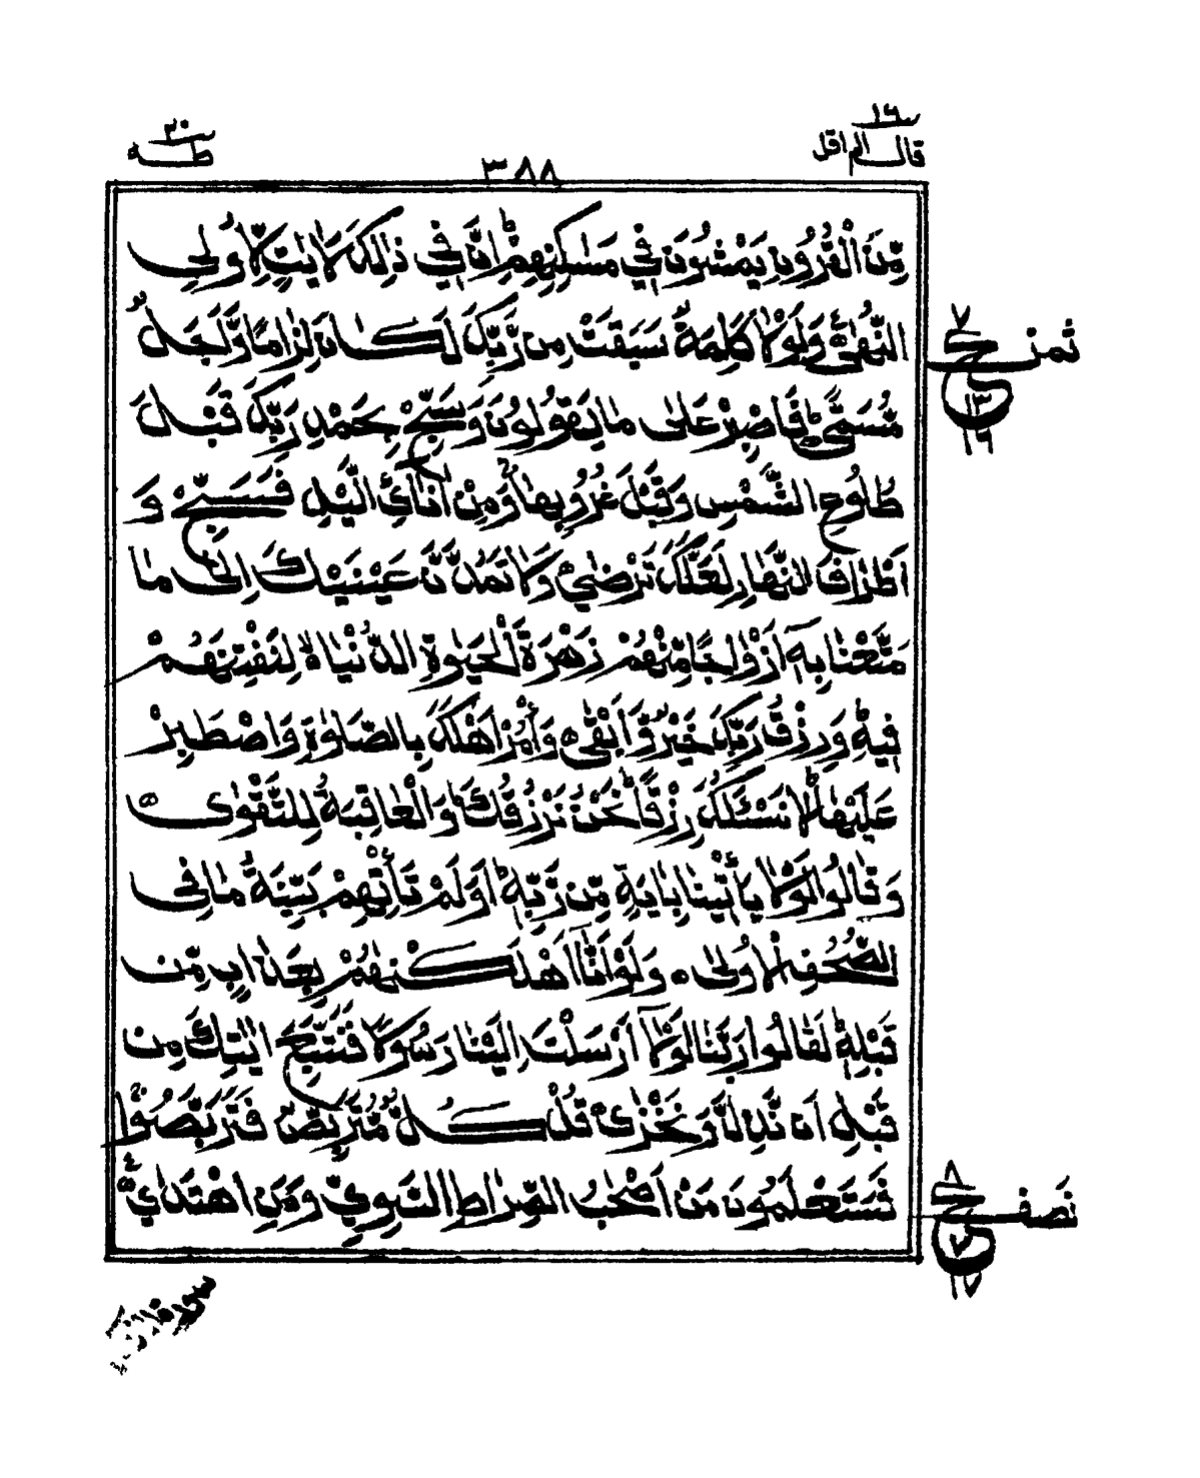 ١٦
قال الم اقل
٣٨٨
٢٠
طه
مِّنَ الْقُرُوْنِ يَمْشُوْنَ فِيْ مَسٰكِنِهِمْ ؕ اِنَّ فِيْ ذٰلِكَ لَاٰيٰتٍ لِّاُولِي
النُّهٰى وَلَوْلَا كَلِمَةٌ سَبَقَتْ مِن رَّبِّكَ لَكَانَ لِزَامًا وَّاَجَلٌ
مُّسَمًّى ؕ فَاصْبِرْ عَلٰى مَا يَقُوْلُوْنَ وَسَبِّحْ بِحَمْدِ رَبِّكَ قَبْلَ
طُلُوْعِ الشَّمْسِ وَقَبْلَ غُرُوْبِهَا وَمِنْ اٰنَآئِ الَّيْلِ فَسَبِّحْ وَ
اَطْرَافَ النَّهَارِ لَعَلَّكَ تَرْضٰى وَلَا تَمُدَّنَّ عَيْنَيْكَ اِلٰى مَا
مَتَّعْنَا بِهٖٓ اَزْوَاجًا مِّنْهُمْ زَهْرَةَ الْحَيٰوةِ الدُّنْيَا لِنَفْتِنَهُمْ
فِيْهِ ؕ وَرِزْقُ رَبِّكَ خَيْرٌ وَّاَبْقٰى وَأْمُرْ اَهْلَكَ بِالصَّلٰوةِ وَاصْطَبِرْ
عَلَيْهَا ؕ لَا نَسْئَلُكَ رِزْقًا ؕ نَحْنُ نَرْزُقُكَ ؕ وَالْعَاقِبَةُ لِلتَّقْوٰى
وَقَالُوْا لَوْلَا يَأْتِيْنَا بِاٰيَةٍ مِّن رَّبِّهٖ ؕ اَوَلَمْ تَأْتِهِمْ بَيِّنَةُ مَا فِى
الصُّحُفِ الْاُولٰى وَلَوْ اَنَّآ اَهْلَكْنٰهُمْ بِعَذَابٍ مِّن
قَبْلِهٖ لَقَالُوْا رَبَّنَا لَوْلَآ اَرْسَلْتَ اِلَيْنَا رَسُوْلًا فَنَتَّبِعَ اٰيٰتِكَ مِن
قَبْلِ اَن نَّذِلَّ وَنَخْزٰى قُلْ كُلٌّ مُّتَرَبِّصٌ فَتَرَبَّصُوْا
فَسَتَعْلَمُوْنَ مَنْ اَصْحٰبُ الصِّرَاطِ السَّوِيِّ وَمَنِ اهْتَدٰى
ثمن
ع
٧
١٣
١٦
نصف
ع
٨
٧
١٧